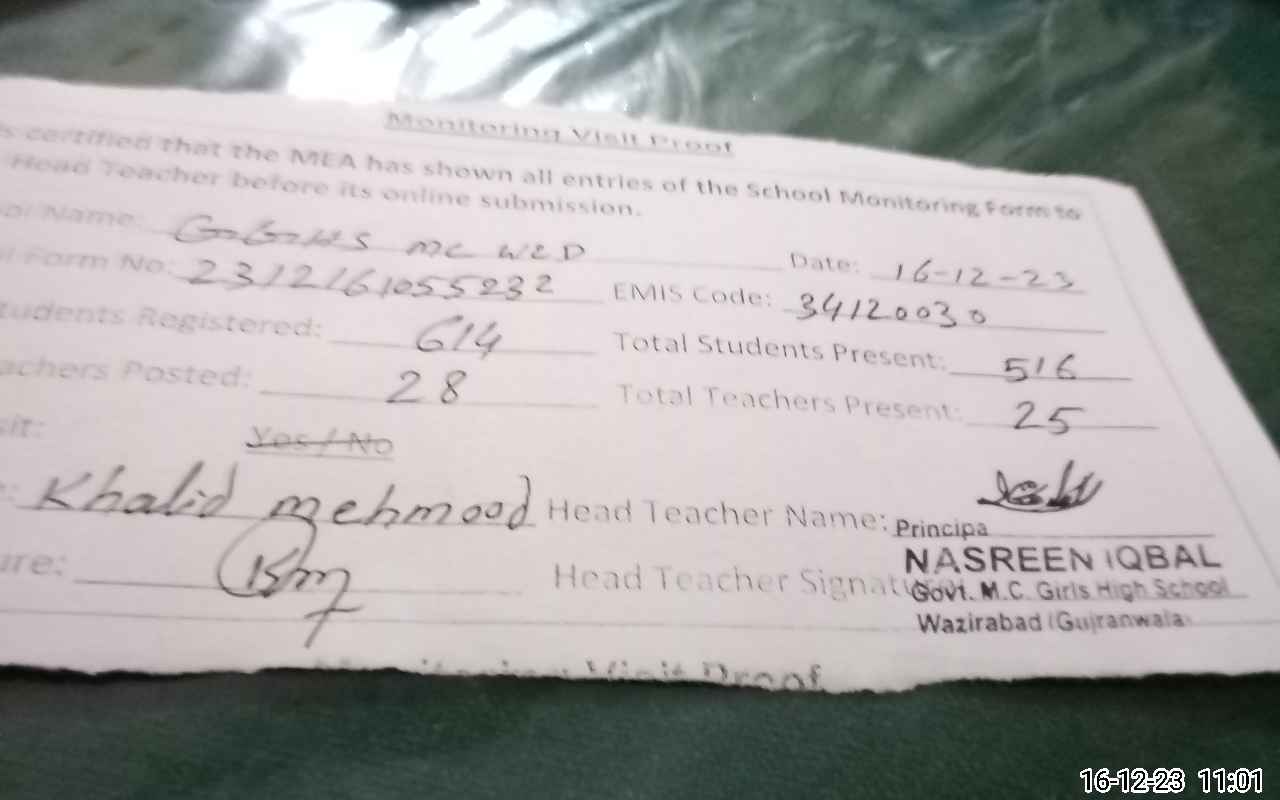 Monitoring Visit Proof
s certified that the MEA has shown all entries of the School Monitoring Form to
Head Teacher before its online submission.
ol Name: G.G.H.S MC WZD Date: 16-12-23
l Form No: 2312161055232 EMIS Code: 34120030
tudents Registered: 614 Total Students Present: 516
achers Posted: 28 Total Teachers Present: 25
sit: Yes / No
: Khalid mehmood Head Teacher Name:
Principa
NASREEN IQBAL
ure: Head Teacher Signat
Govt. M.C. Girls High School
Wazirabad (Gujranwala)
Monitoring Visit Proof
16-12-23 11:01